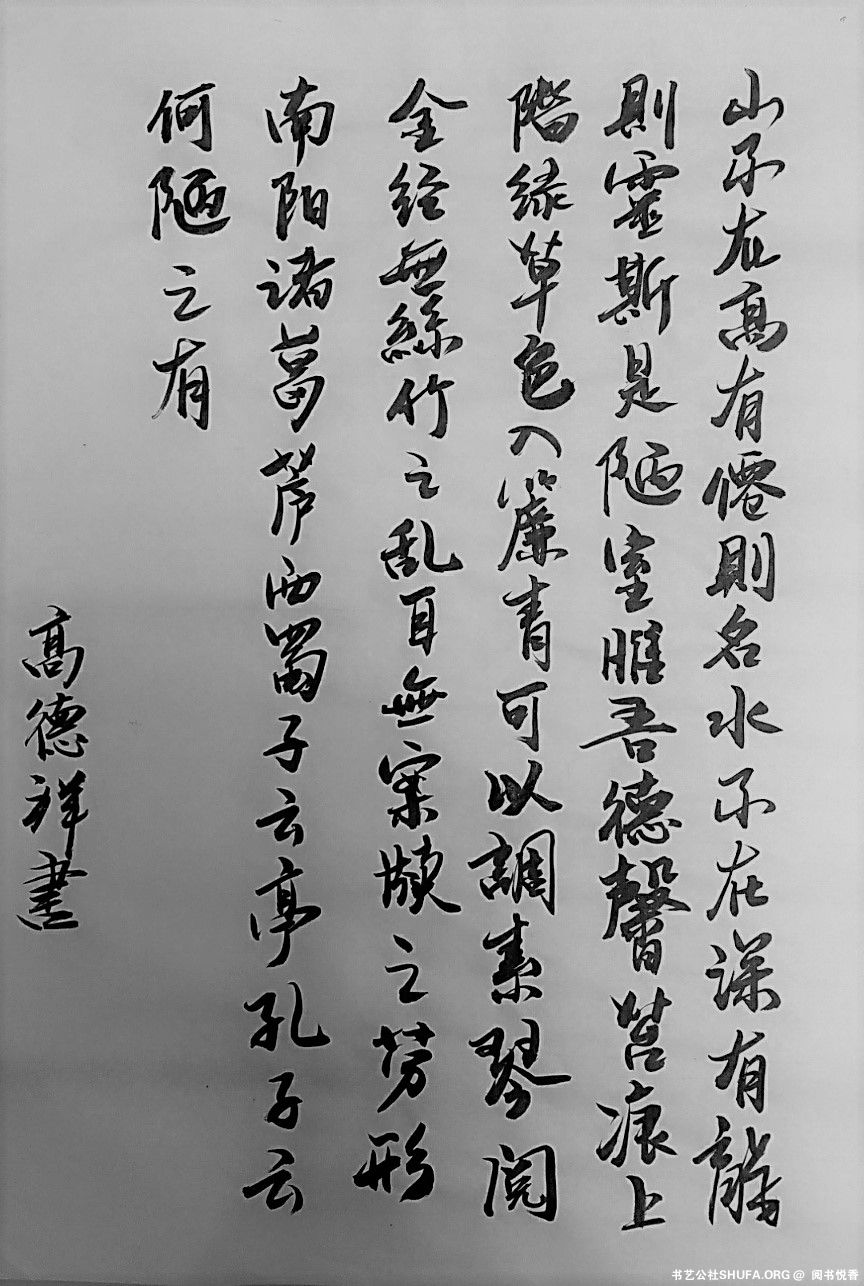 山不在高有僊則名水不在深有龍
則霊斯是陋室惟吾德馨苔痕上
階緑草色入簾青可以調素琴閲
金经無絲竹之乱耳無案牘之劳形
南阳诸葛芦西蜀子云亭孔子云
何陋之有
高德祥書
书艺公社SHUFA.ORG @ 阅书悦香